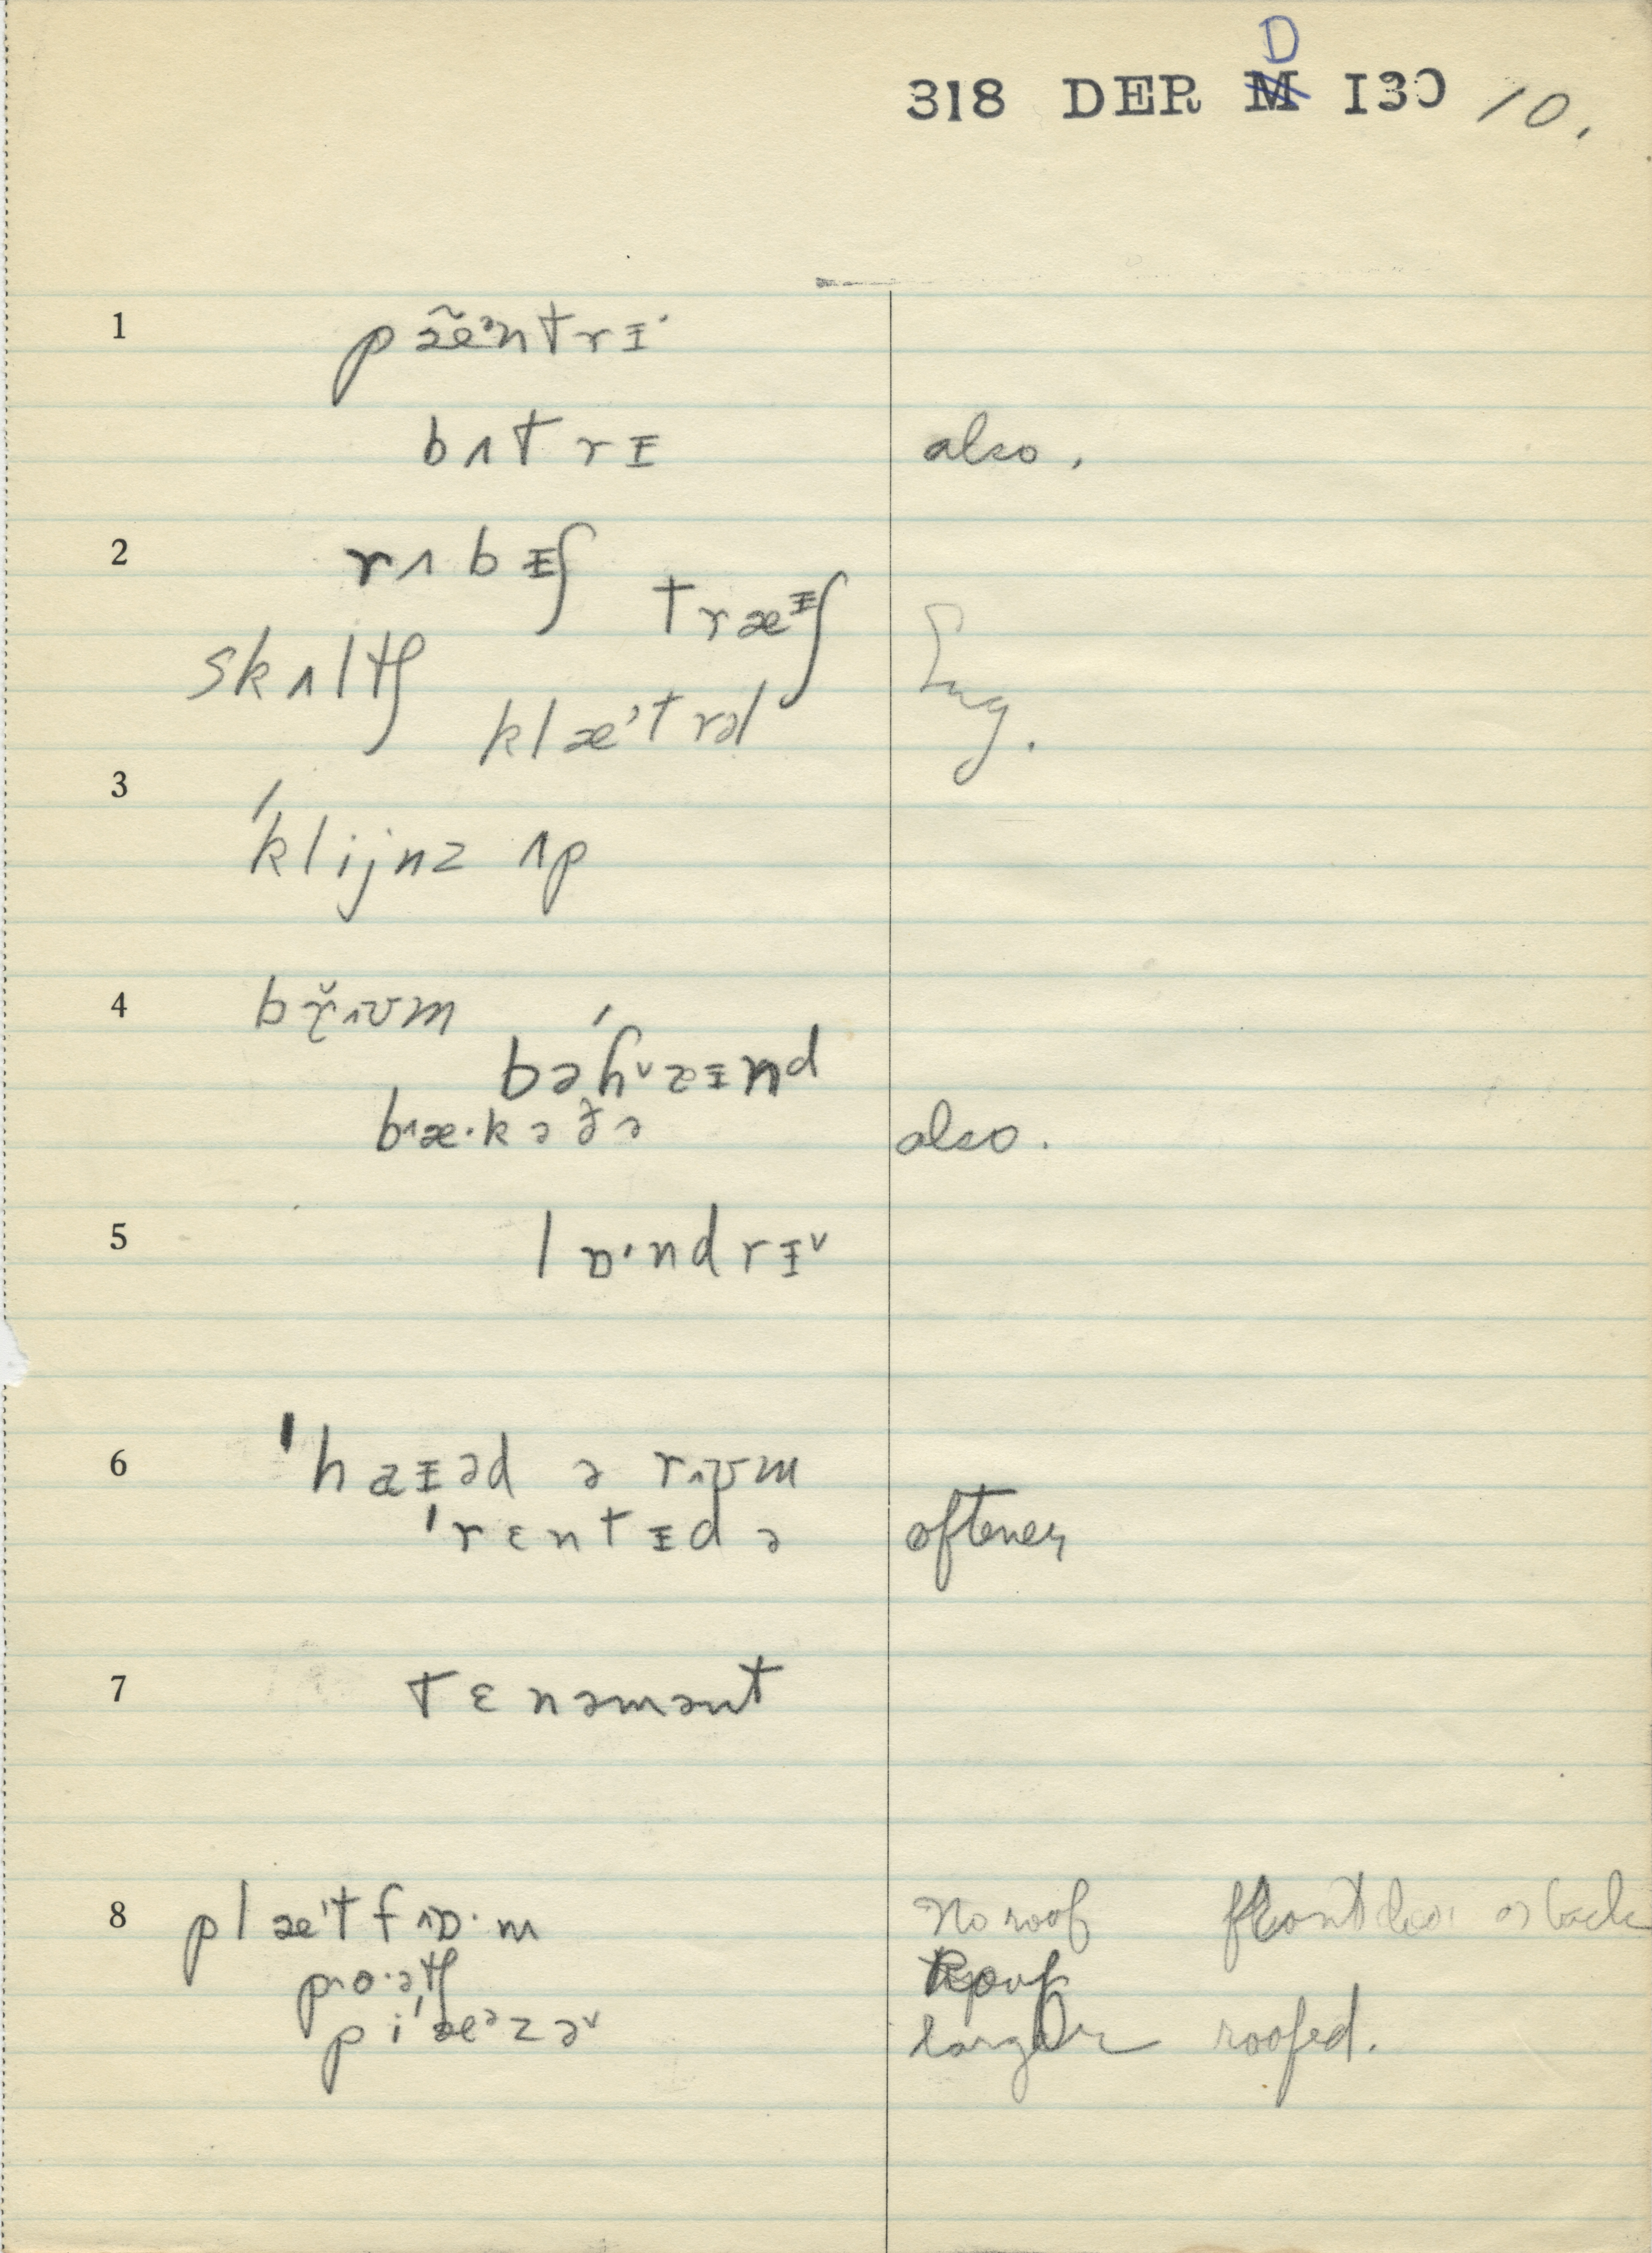 318 DER D 130 10.
1 pæ̃ᵊntrɪ˙
bʌtrɪ also.
2 rʌbɪʃ træᶦʃ
skʌltʃ klæ'trəl Eng.
3 'klijnz ʌp
4 br̯̆ʌʊm
bəhᵛzɪnd
b˄æ·kədə also.
5 lɒ·ndrɪᵛ
6 'haɪəd ə rʌʊm
'rɛntɪd ə oftener
7 tɛnəmənt
8 plæ'tf˄ɒ·m No roof front door or back
p˄o·ətʃ Roof
pi'æᵊzəᵛ larger roofed.